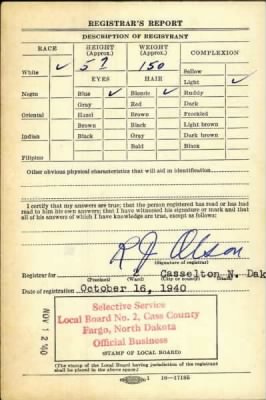 REGISTRAR'S REPORT
DESCRIPTION OF REGISTRANT
RACE HEIGHT (Approx.) WEIGHT (Approx.) COMPLEXION
White ✓ 5 7 150 Sallow
EYES HAIR Light ✓
Negro Blue ✓ Blonde ✓ Ruddy
Gray Red Dark
Oriental Hazel Brown Freckled
Brown Black Light brown
Indian Black Gray Dark brown
Bald Black
Filipino
Other obvious physical characteristics that will aid in identification
I certify that my answers are true; that the person registered has read or has had
read to him his own answers; that I have witnessed his signature or mark and that
all of his answers of which I have knowledge are true, except as follows:
R J Olson
(Signature of registrar)
Registrar for Casselton N. Dak
(Precinct) (Ward) (City or county)
Date of registration October 16, 1940
NOV 12 40
Selective Service
Local Board No. 2, Cass County
Fargo, North Dakota
Official Business
(STAMP OF LOCAL BOARD)
(The stamp of the Local Board having jurisdiction of the registrant
shall be placed in the above space.)
16—17185